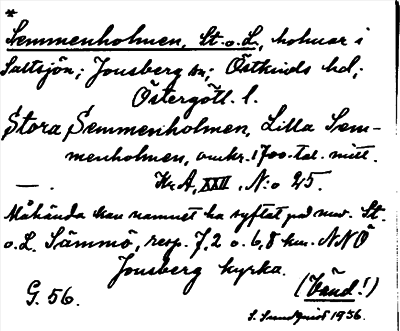 *
Semmenholmen, St. o. L., holmar i
Saltsjön; Jonsberg sn; Östkinds hd;
Östergötl. l.
Stora Semmenholmen, Lilla Sem-
menholmen, omkr. 1700-tal. mitt.
— . Kr. A, XXII, N:o 25.
Måhända kan namnet ha syftat på nuv. St.
o. L. Sämmö, resp. 7,2 o. 6,8 km. NNÖ
Jonsberg kyrka.
G. 56. (Vänd!)
1956.